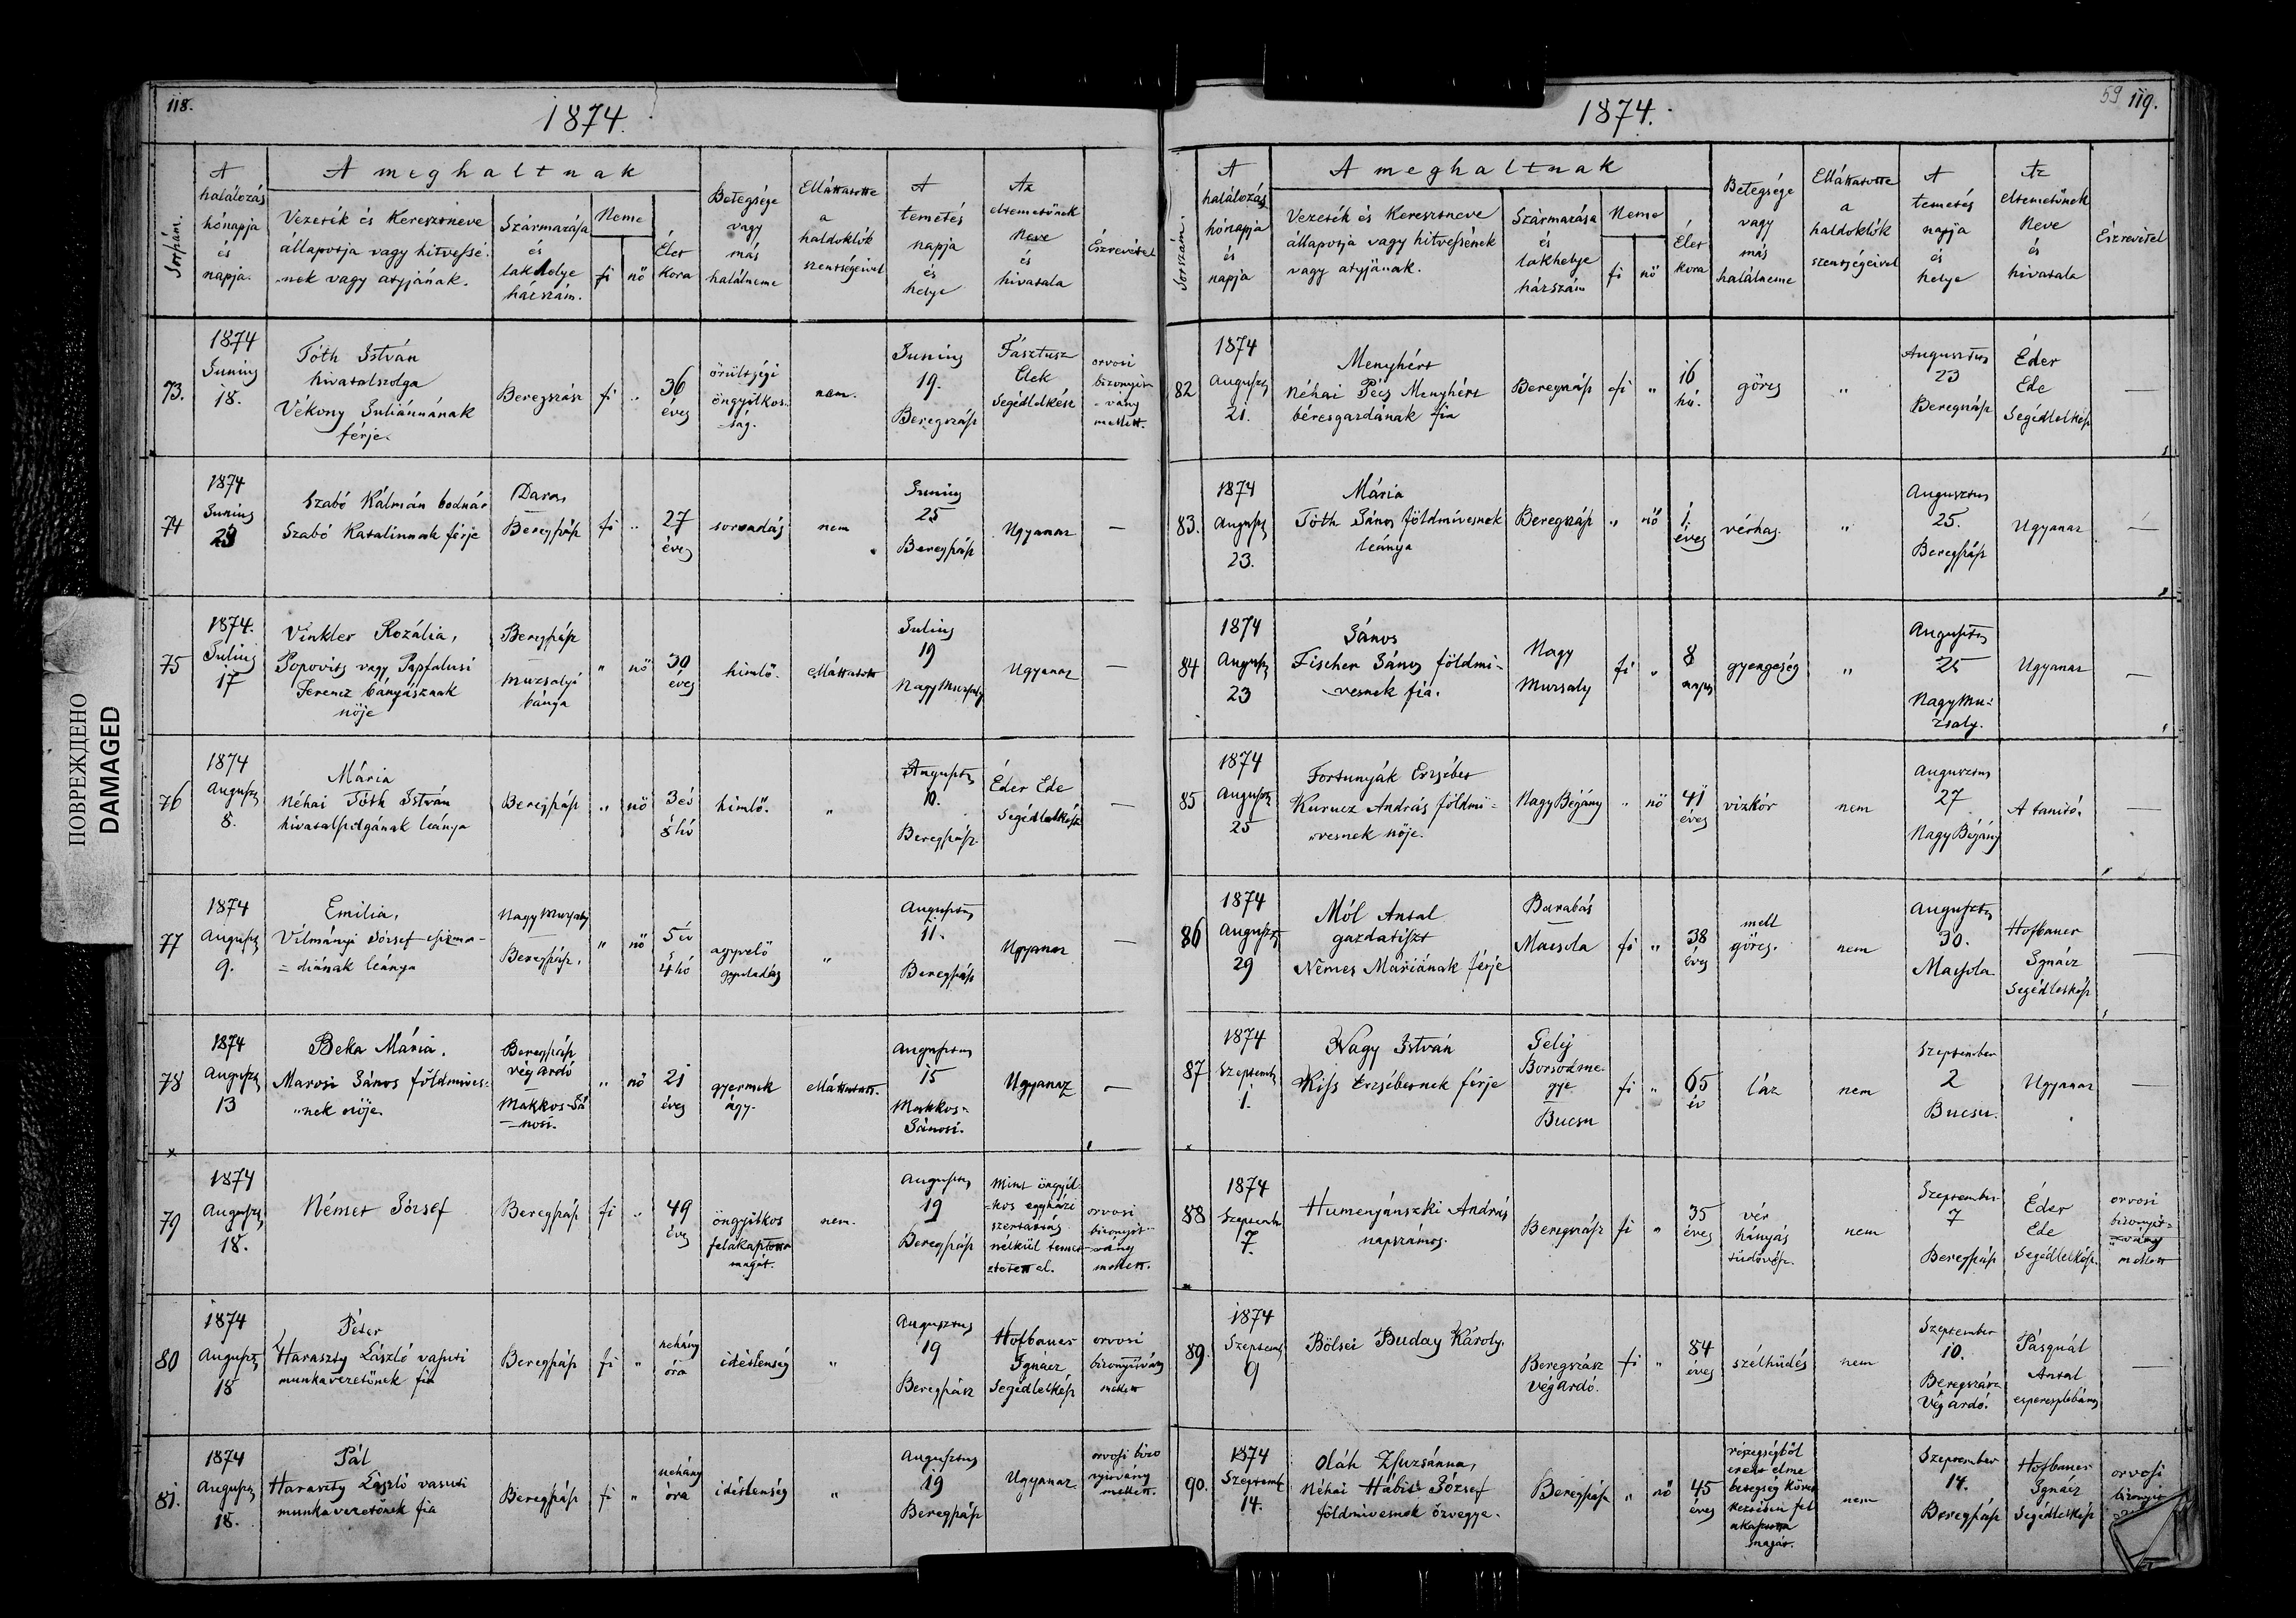 118.
1874.
Sorszám.
A
halálozás
hónapja
és
napja.
A meghaltnak
Vezeték és Keresztneve
állapotja vagy hitvessé-
nek vagy atyjának.
Származása
és
lakhelye
házszám.
Neme
fi
nő
Élet
kora
Betegsége
vagy
más
halálneme
Elláttatotte
a
haldoklók
szentségeivel
A
temetés
napja
és
helye
Az
eltemetőnek
Neve
és
hivatala
Észrevétel
73.
1874
Junius
18.
Tóth István
hivatalszolga
Vékony Juliánnának
férje.
Beregszász
fi
"
36
éves
örültségi
öngyilkos-
ság.
nem.
Junius
19.
Beregszász
Fásztusz
Elek
Segédlelkész
orvosi
bizonyít-
vány
mellett.
74
1874
Junius
23
Szabó Kálmán bodnár
Szabó Katalinnak férje
Daróc
Beregszász
fi
"
27
éves
sorvadás
nem
Junius
25
Beregszász
Ugyanaz
—
75
1874.
Julius
17
Vinkler Rozália,
Popovits vagy Papfalusi
Ferencz bányásznak
nője
Beregszász
Muzsalyi
bánya
"
nő
30
éves
himlő.
elláttatott
Julius
19
Nagy Muzsaly
Ugyanaz
—
76
1874
August
8.
Mária
Néhai Tóth István
hivatalszolgának leánya
Beregszász
"
nő
3 év
8 hó
himlő.
"
August
10.
Beregszász
Éder Ede
Segédlelkész
—
77
1874
August
9.
Emilia,
Vilmányi József csizma-
= diának leánya
Nagy Muzsaly
Beregszász.
"
nő
5 év
4 hó
agyvelő
gyuladás
"
Augustus
11.
Beregszász
Ugyanaz
—
78
1874
August
13
Beka Mária.
Marosi János földmives-
"nek nője.
Beregszász
végardó
Makkos-Já
nosi.
"
nő
21
éves
gyermek
ágy.
elláttatott.
Augustus
15
Makkos-
Jánosi.
Ugyanaz
—
79
1874
August
18.
Német József
Beregszász
fi
"
49
éves
öngyilkos
felakasztotta
magát.
nem.
Augustus
19
Beregszász
Mint öngyil-
kos egyházi
szertartás
nélkül temet-
tetett el.
orvosi
bizonyít-
vány
mellett.
80
1874
August
18
Péter
Haraszty László vasuti
munkavezetőnek fia
Beregszász
fi
"
nehány
óra
idétlenség
"
Augusztus
19
Beregszász
Hofbauer
Ignácz
Segédlelkész
orvosi
bizonyítvány
mellett
81.
1874
August
18.
Pál
Haraszty László vasuti
munkavezetőnek fia
Beregszász
fi
"
nehány
óra
idétlenség
"
Augusztus
19
Beregszász
Ugyanaz
orvosi bizo
nyitvány
mellett.
59 119.
1874.
Sorszám.
A
halálozás
hónapja
és
napja
A meghaltnak
Vezeték és Keresztneve
állapotja vagy hitvessének
vagy atyjának.
Származása
és
lakhelye
házszám
Neme
fi
nő
Élet
kora
Betegsége
vagy
más
halálneme
Elláttatotte
a
haldoklók
szentségeivel
A
temetés
napja
és
helye
Az
eltemetőnek
Neve
és
hivatala
Észrevétel
82
1874
August
21.
Menyhért
néhai Pécs Menyhért
béresgazdának fia
Beregszász
fi
"
16
hó.
görcs
"
Augusztus
23
Beregszász
Éder
Ede
Segédlelkész
—
83.
1874
August
23.
Mária
Tóth János földmivesnek
leánya
Beregszász
"
nő
1
éves
vérhas.
"
Augusztus
25.
Beregszász
Ugyanaz
—
84
1874
August
23
János
Fischer János földmi-
vesnek fia.
Nagy
Muzsaly
fi
"
8
napos
gyengeség
"
Augusztus
25
Nagy Mu-
zsaly.
Ugyanaz
—
85
1874
August
25
Fortunyák Erzsébet
Kurucz András földmi-
vesnek nője.
Nagy Bégány
"
nő
41
éves
vizkór
nem
Augusztus
27
Nagy Bégány
A tanitó.
—
86
1874
August
29
Mól Antal
gazdatiszt
Nemes Máriának férje
Barabás
Macsola
fi
"
38
éves
mell
görcs.
nem
Augusztus
30.
Macsola
Hofbauer
Ignácz
Segédlelkész
—
87
1874
Septemb
1.
Nagy István
Kiss Erzsébetnek férje
Gelej
Borsodme-
gye
Bucsu
fi
"
65
év
láz
nem
Szeptember
2
Bucsu.
Ugyanaz
—
88
1874
Szeptemb
7.
Humenyánszki András
napszámos.
Beregszász
fi
"
35
éves
vér
hányás
tüdővész.
nem
Szeptember
7
Beregszász
Éder
Ede
Segédlelkész.
orvosi
bizonyít-
vány
mellett
89.
1874
Szeptemb
9
Bölsei Buday Károly.
Beregszász
végardó.
fi
"
84
éves
szélhüdés
nem
Szeptember
10.
Beregszász
Végardó.
Pásquál
Antal
esperesplébános
—
90.
1874
Szeptemb
14.
Oláh Zsuzsánna,
Néhai Hábit József
földmivesnek özvegye.
Beregszász
"
nő
45
éves
részegségből
eredt elme
betegség követ
keztében fel
akasztotta
magát.
nem
Szeptember
14.
Beregszász
Hofbauer
Ignácz
Segédlelkész
orvosi
bizonyít
ПОВРЕЖДЕНО
DAMAGED